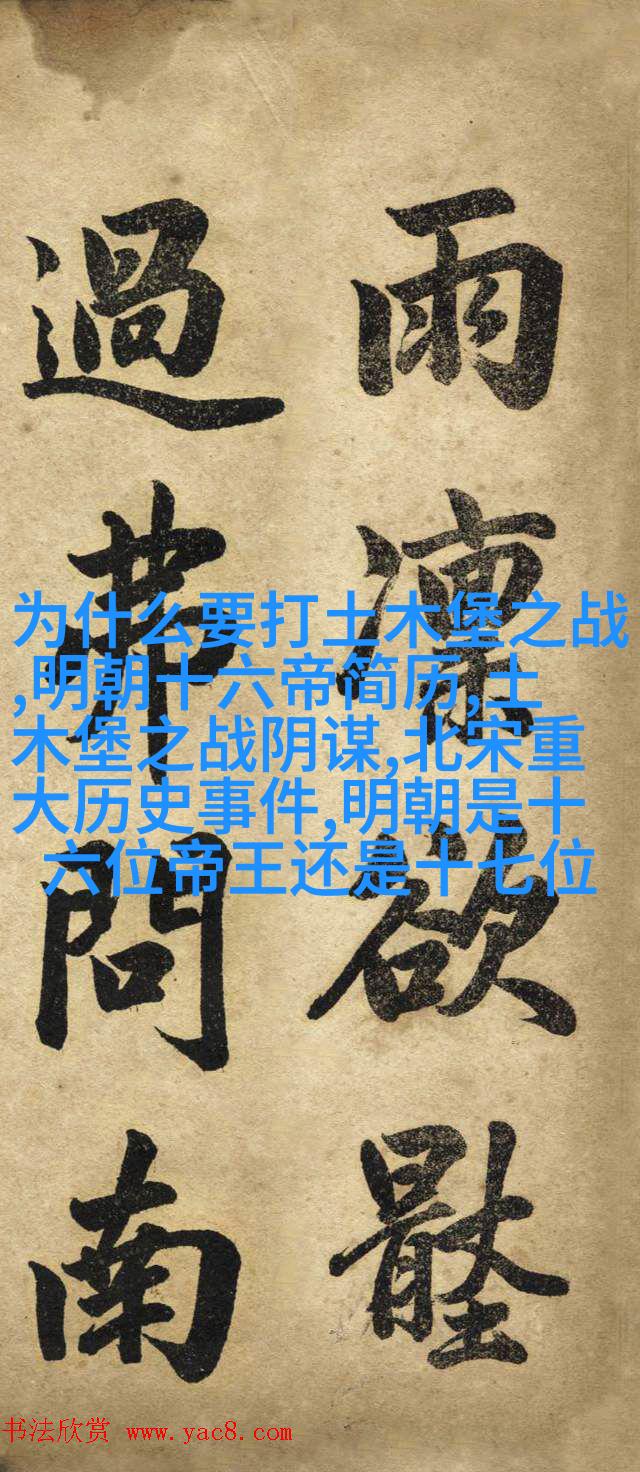 雨凛欲
過弗問南
为什么要打土木堡之战
,明朝十六帝简历,土
木堡之战阴谋,北宋重
大历史事件,明朝是十
六位帝王还是十七位
书法欣赏 www.yac8.com